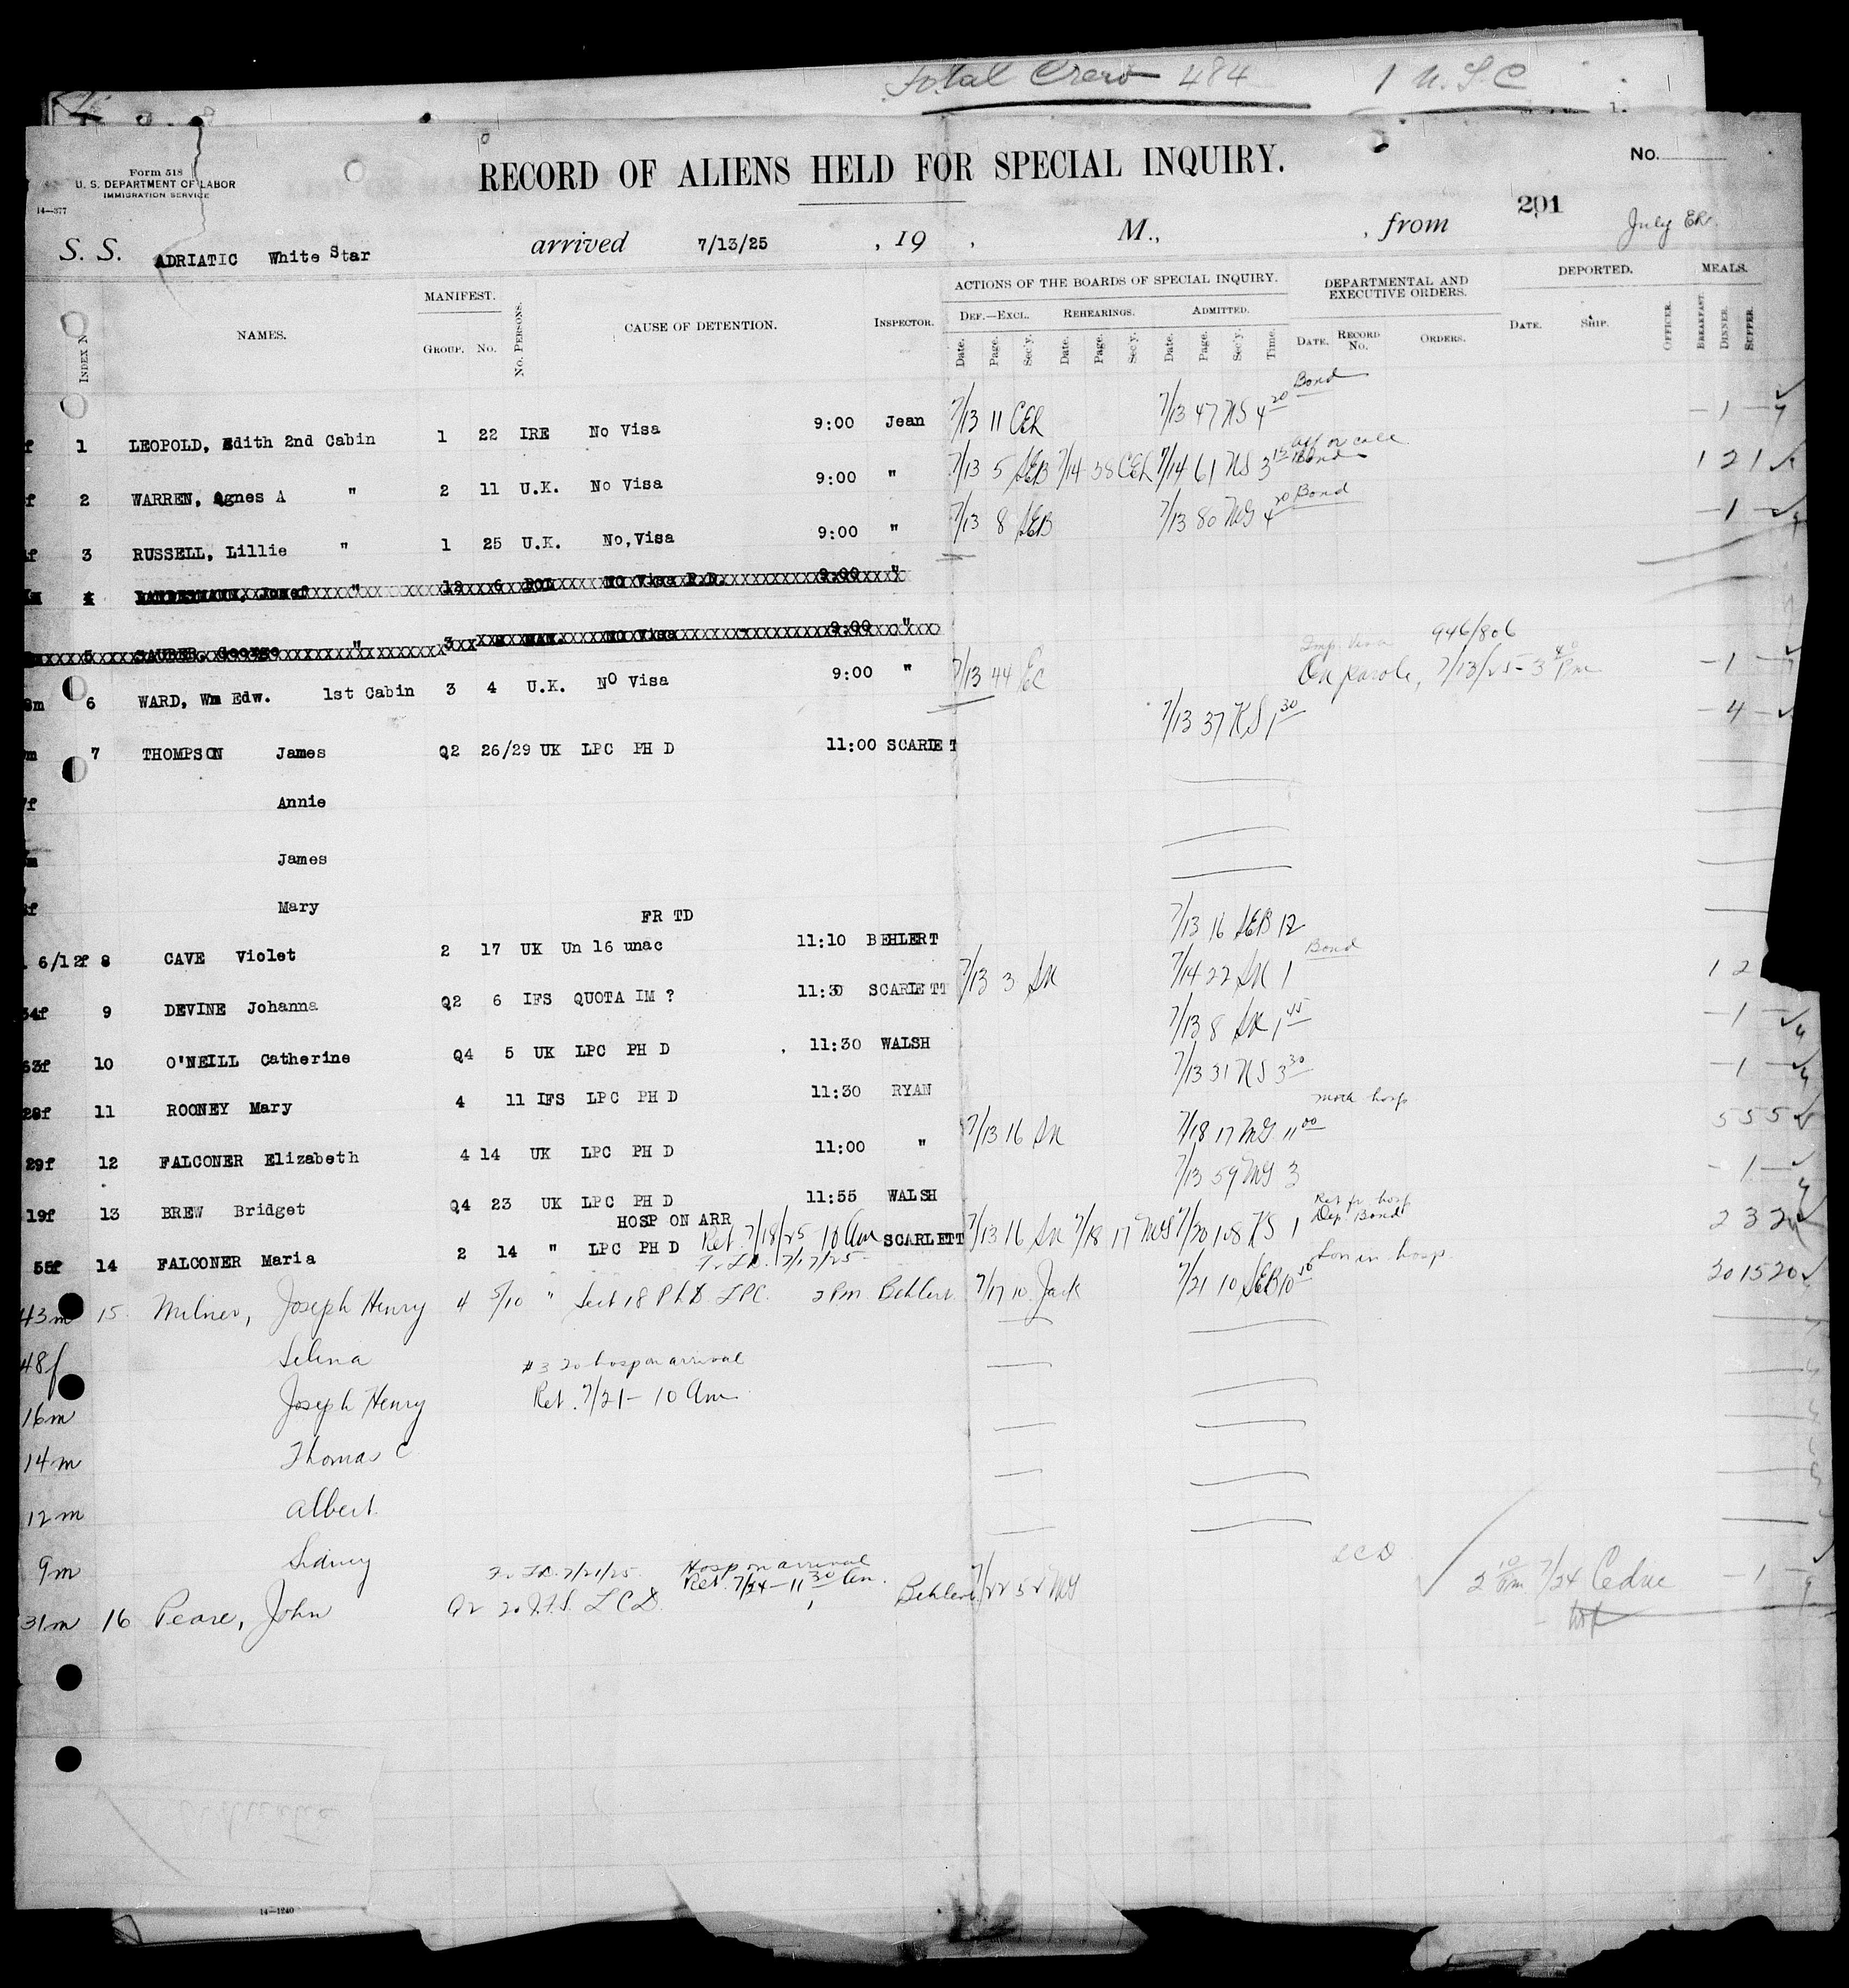 Total Crew 484 1 U.S.C
Form 518
U. S. DEPARTMENT OF LABOR
IMMIGRATION SERVICE
14—377
RECORD OF ALIENS HELD FOR SPECIAL INQUIRY.
No.
201
July
S. S. ADRIATIC White Star arrived 7/13/25 , 19 , M., , from
INDEX No. NAMES. MANIFEST. GROUP. No. No. PERSONS. CAUSE OF DETENTION. INSPECTOR.
ACTIONS OF THE BOARDS OF SPECIAL INQUIRY. DEPARTMENTAL AND EXECUTIVE ORDERS. DEPORTED. MEALS.
DEF.—EXCL. REHEARINGS. ADMITTED.
Date. Page. Sec'y. Date. Page. Sec'y. Date. Page. Sec'y. Time. DATE. RECORD No. ORDERS. DATE. SHIP. OFFICER. BREAKFAST. DINNER. SUPPER.
Bond
f 1 LEOPOLD, Edith 2nd Cabin 1 22 IRE No Visa 9:00 Jean 7/13 11 CEL 7/13 47 NS 4 20 — 1 —
f 2 WARREN, Agnes A " 2 11 U.K. No Visa 9:00 " 7/13 5 SEB 7/14 38 CEL 7/14 61 NS 3 15 Bond 1 2 1
f 3 RUSSELL, Lillie " 1 25 U.K. No,Visa 9:00 " 7/13 8 SEB 7/13 80 MG 4 20 Bond — 1 —
4 Josef " 12 6 POL No Visa P.D. 9:00 "
5 SAUBER, George " 3 No Visa 9:00 "
946/806
m 6 WARD, Wm Edw. 1st Cabin 3 4 U.K. No Visa 9:00 " 7/13 44 EC On parole, 7/13/25 - 3 40 Pm — 1 —
m 7 THOMPSON James Q2 26/29 UK LPC PH D 11:00 SCARLET T 7/13 37 KS 1 30 — 4 —
f Annie
m James
f Mary
FR TD
6/12f 8 CAVE Violet 2 17 UK Un 16 unac 11:10 BEHLERT 7/13 16 SEB 12
Bond
34f 9 DEVINE Johanna Q2 6 IFS QUOTA IM ? 11:30 SCARLETT 7/13 3 SK 7/14 22 SK 1 1 2
53f 10 O'NEILL Catherine Q4 5 UK LPC PH D 11:30 WALSH 7/13 8 SK 1 45 — 1 —
28f 11 ROONEY Mary 4 11 IFS LPC PH D 11:30 RYAN 7/13 31 NS 3 30 — 1 —
hosp
29f 12 FALCONER Elizabeth 4 14 UK LPC PH D 11:00 " 7/13 16 SK 7/18 17 MG 11 00 5 5 5
19f 13 BREW Bridget Q4 23 UK LPC PH D 11:55 WALSH 7/13 59 MG 3 — 1 —
HOSP ON ARR Ret fr hosp
55f 14 FALCONER Maria 2 14 " LPC PH D Ret 7/18/25 10 Am SCARLETT 7/13 16 SK 7/18 17 MG 7/20 108 KS 1 Dep. Bond 2 3 2
7/17/25 Son in hosp.
43m 15 Milner, Joseph Henry 4 5/10 " Sect 18 PhD LPC. 2 Pm Behlert 7/17 10 Jack 7/21 10 SEB 10 10 20 15 20
48f Selina # 3 20 hosp on arrival
16m Joseph Henry Ret. 7/21 - 10 Am
14m Thomas C
12m Albert
9m Sidney
7/21/25 Hosp on arrival LCD
31m 16 Peare, John Q2 20 I.F.S. LCD. Ret. 7/24 - 11 30 Am. Behlert 7/22 52 MG 2 10 Pm 7/24 Cedric — 1 —
14—1240